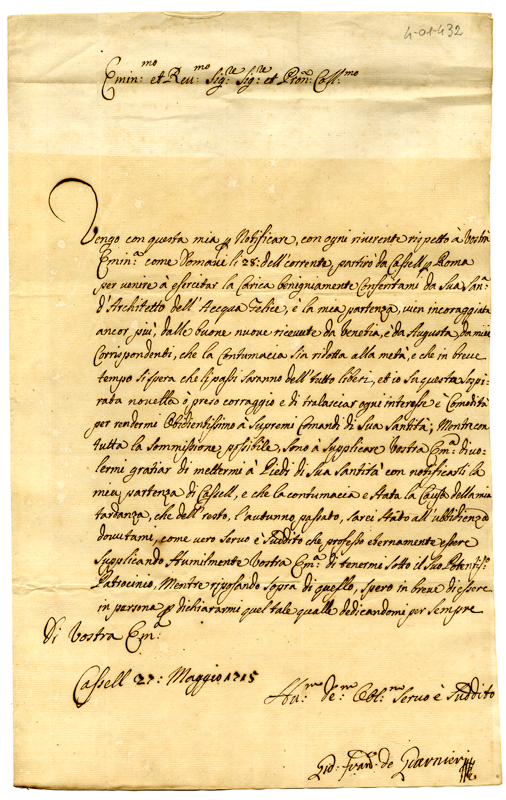 4-01-432
Emin:mo et Reu:mo Sig:re Sig:re et Pron: Coll:mo
Vengo con questa mia p Notificare, con ogni riuerente rispetto à Vostra
Emin:a come Domani li 28: dell'corrente, partirò da Cassell p Roma
per venire à esercitar la Carica benigniamente Conferitami da Sua San:a
d'Architetto dell'Acqua Felice, è la mea partenza, uien incoraggiata
ancor piu, dalle buone nuoue riceuute da Venetia, è da Augusta da miei
Corrispondenti, che la Contumacia sia ridotta alla metà, e che in breue
tempo si spera che li passi saranno dell'tutto liberi, et io su questa sospi-
rata nouella ò preso corraggio e di tralasciar ogni interesse è Comodità
per rendermi Obidientissimo à Supremi Comandi di Sua Santità; Mentre con
tutta la sommissione possibile, sono à supplicare Vostra Em:a di uo-
lermi gratiar di mettermi à Piedi di Sua Santità con notificarli la
mea partenza di Cassell, e che la contumacia e stata la Causa della mia
tardanza, che dell'resto, l'autunno passato, sarei stato all'ubbidienza
douutami, come vero Seruo è Suddito che professo eternamente essere
supplicando Humilmente Vostra Em:a di tenermi sotto il Suo Potentiss:
Patrocinio, Mentre riposando sopra di quello, spero in breue di essere
in persona p dichiararmi quel tale qualle dedicandomi per sempre
Di Vostra Em:a
Cassell 27: Maggio 1715
Hu:mo De:mo Obl:mo Seruo è Suddito
Gio: Fran: de Guarnieri